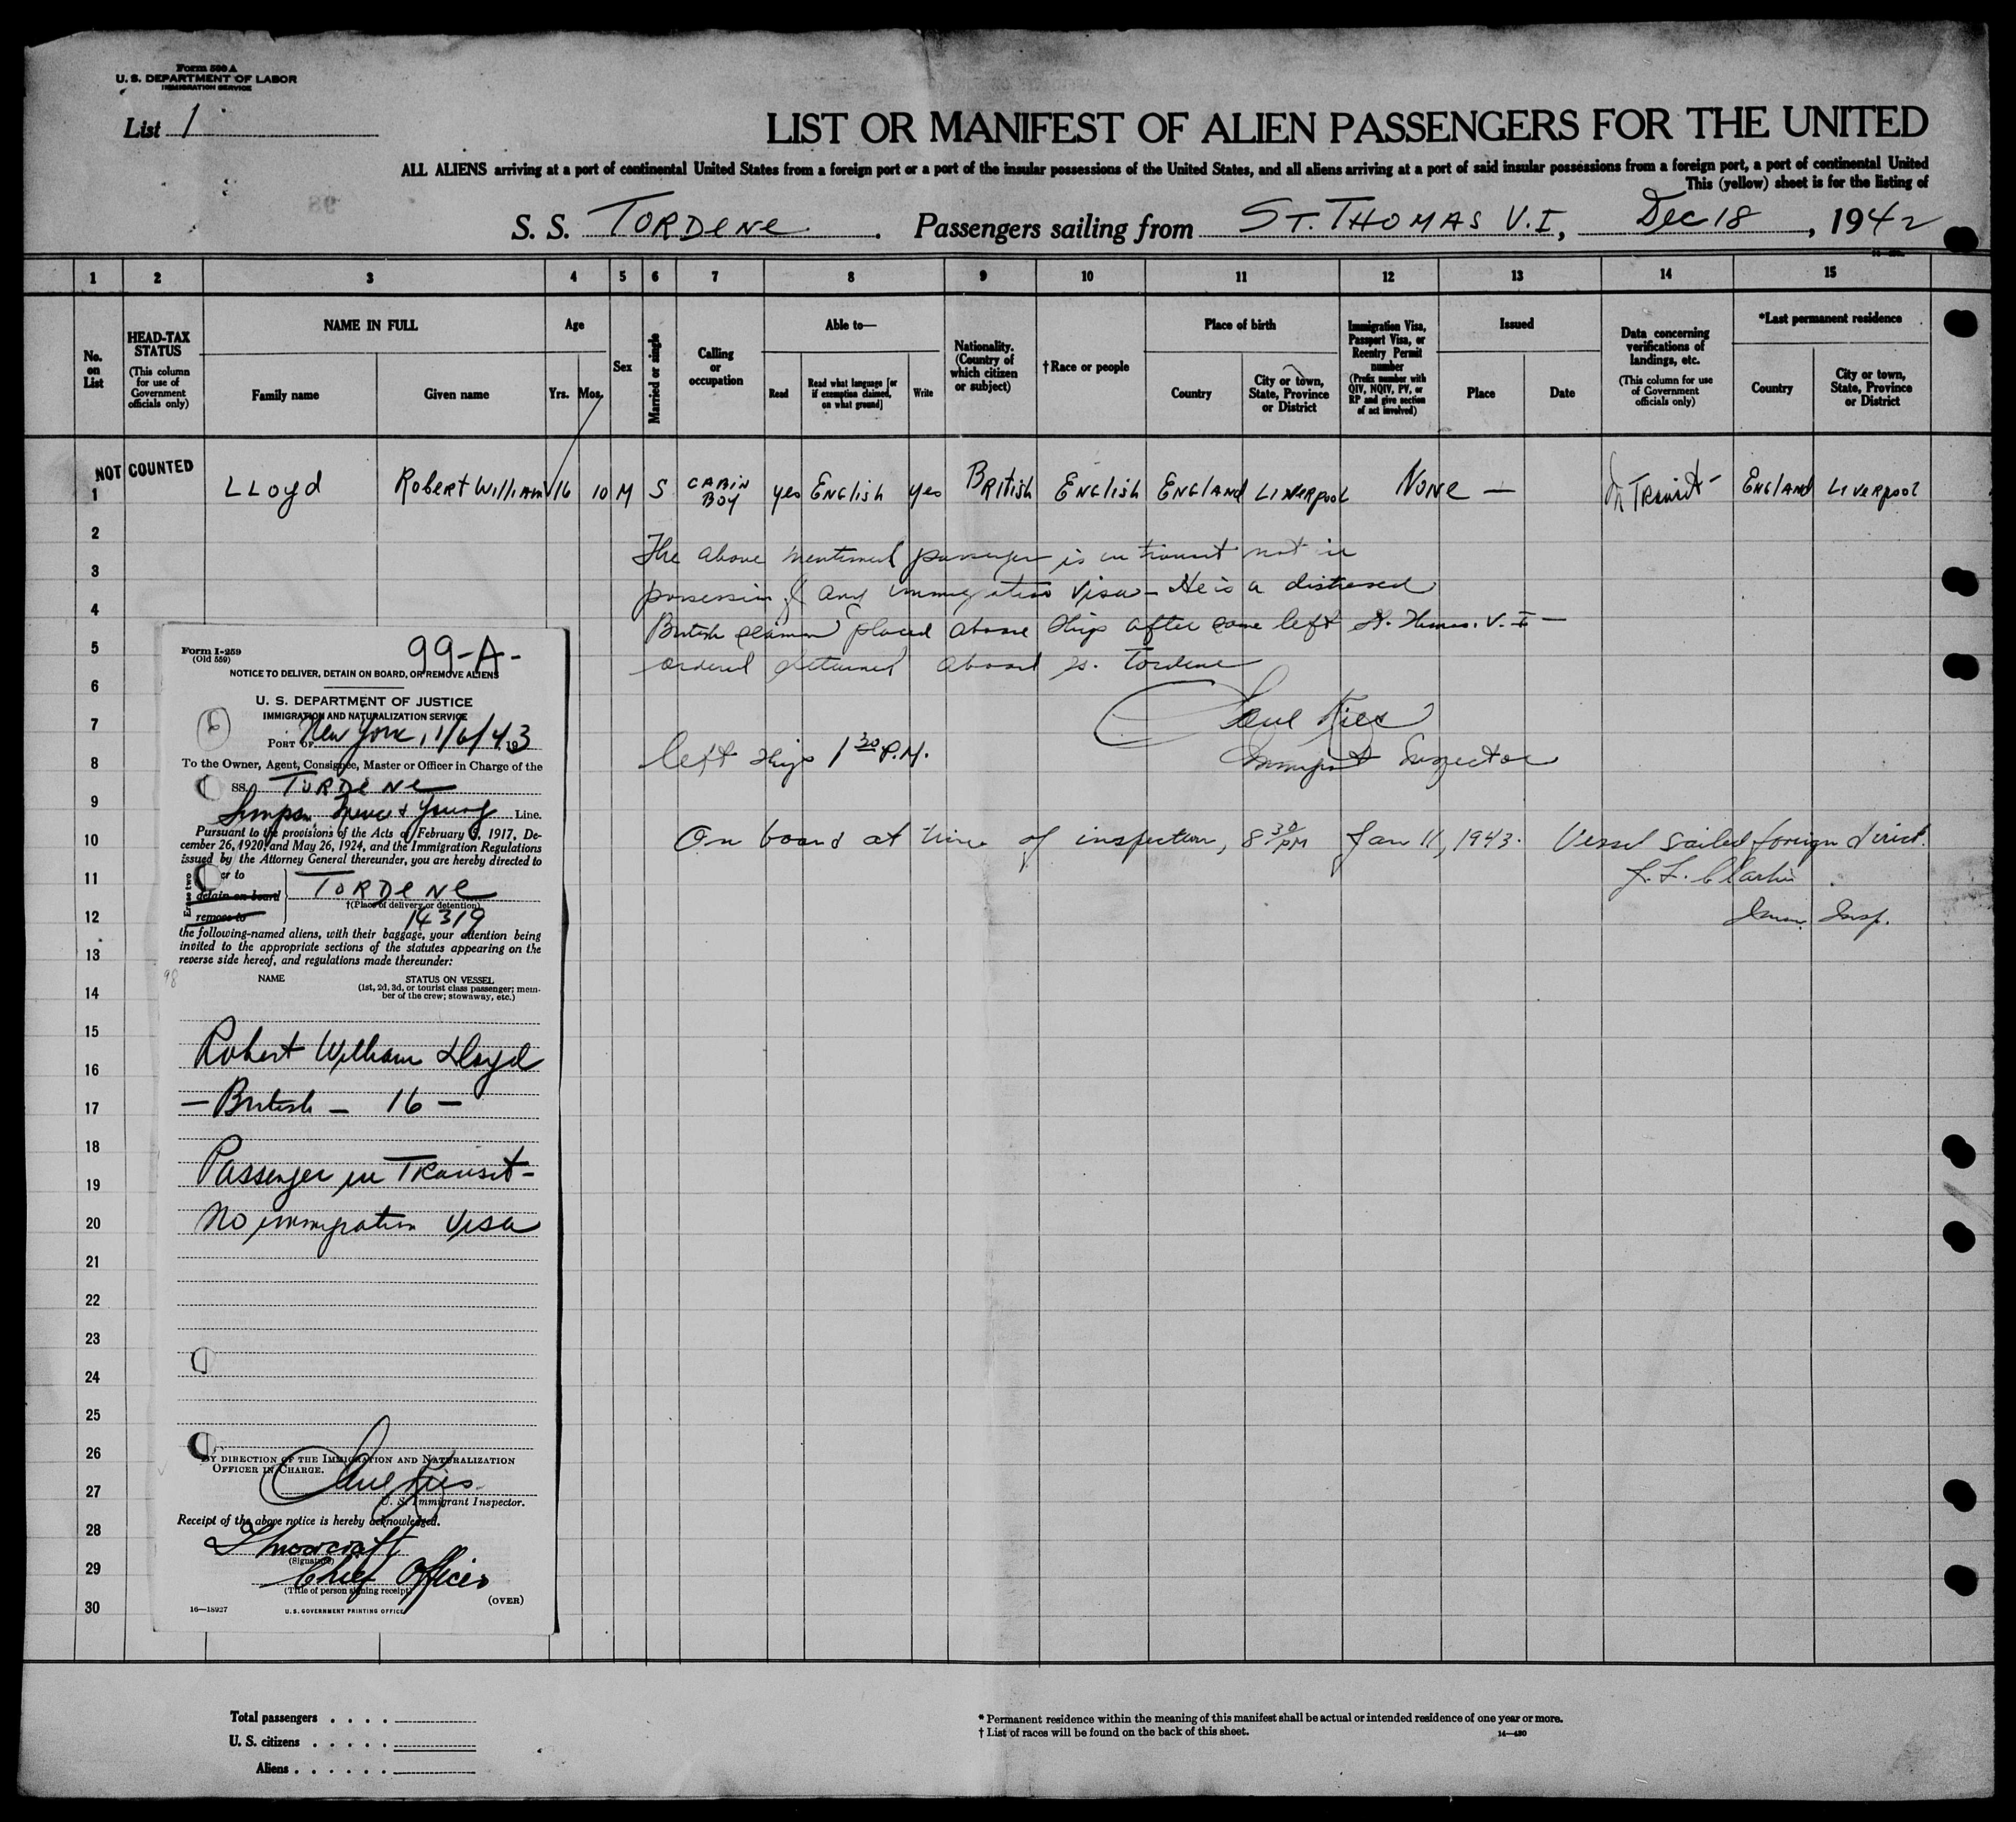 Form 500 A
U. S. DEPARTMENT OF LABOR
IMMIGRATION SERVICE
List 1
LIST OR MANIFEST OF ALIEN PASSENGERS FOR THE UNITED
ALL ALIENS arriving at a port of continental United States from a foreign port or a port of the insular possessions of the United States, and all aliens arriving at a port of said insular possessions from a foreign port, a port of continental United
This (yellow) sheet is for the listing of
98
S. S. TORDENE. Passengers sailing from ST. THOMAS V. I, Dec 18, 1942
1 2 3 4 5 6 7 8 9 10 11 12 13 14 15
No. on List
HEAD-TAX STATUS
(This column for use of Government officials only)
NAME IN FULL
Family name
Given name
Age
Yrs. Mos.
Sex
Married or single
Calling or occupation
Able to—
Read
Read what language [or if exemption claimed, on what ground]
Write
Nationality. (Country of which citizen or subject)
† Race or people
Place of birth
Country
City or town, State, Province or District
Immigration Visa, Passport Visa, or Reentry Permit number
(Prefix number with QIV, NQIV, PV, or RP and give section of act involved)
Issued
Place
Date
Data concerning verifications of landings, etc.
(This column for use of Government officials only)
*Last permanent residence
Country
City or town, State, Province or District
NOT COUNTED
1 LLoyd Robert William 16 10 M S CABIN BOY yes ENGLish yes BRitish ENGLish ENGLAND LIVERpool NONE — In Transit— ENGLAND LIVERpool
2
The above mentioned passenger is in transit not in
3
possession of any immigration visa — He is a distressed
4
British seaman placed aboard ship after same left St. Thomas. V. I —
5
ordered detained aboard ss. Tordene
6
7
Paul Kies
8
left ship 1 30 P.M.
Immigrant Inspector
9
10
On board at time of inspection, 8 30 PM Jan 11, 1943. Vessel sailed foreign direct.
11
12
Imm. Insp.
13
14
15
16
17
18
19
20
21
22
23
24
25
26
27
28
29
30
Form I-259
(Old 559)
99-A-
NOTICE TO DELIVER, DETAIN ON BOARD, OR REMOVE ALIENS
U. S. DEPARTMENT OF JUSTICE
IMMIGRATION AND NATURALIZATION SERVICE
6
PORT OF New York, 1/6/43
To the Owner, Agent, Consignee, Master or Officer in Charge of the
SS. TORDENE
Simpson, Spence & Young Line.
Pursuant to the provisions of the Acts of February 5, 1917, De-
cember 26, 1920, and May 26, 1924, and the Immigration Regulations
issued by the Attorney General thereunder, you are hereby directed to
Erase two
er to
detain on board
remove to
TORDENE
†(Place of delivery or detention)
14319
the following-named aliens, with their baggage, your attention being
invited to the appropriate sections of the statutes appearing on the
reverse side hereof, and regulations made thereunder:
98
NAME
STATUS ON VESSEL
(1st, 2d, 3d, or tourist class passenger; mem-
ber of the crew; stowaway, etc.)
Robert William Lloyd
— British — 16 —
Passenger in Transit —
No immigration visa
BY DIRECTION OF THE IMMIGRATION AND NATURALIZATION
OFFICER IN CHARGE.
Paul Kies
U. S. Immigrant Inspector.
Receipt of the above notice is hereby acknowledged.
(Signature)
Chief Officer
(Title of person signing receipt)
(OVER)
16—18927
U. S. GOVERNMENT PRINTING OFFICE
Total passengers . . . .
U. S. citizens . . . . .
Aliens . . . . . .
* Permanent residence within the meaning of this manifest shall be actual or intended residence of one year or more.
† List of races will be found on the back of this sheet.
14—430